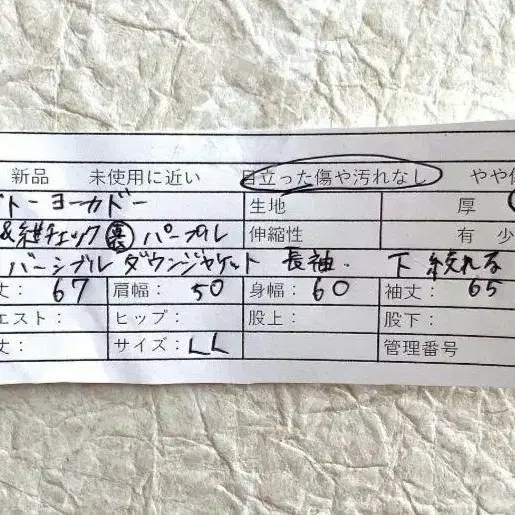 新品 未使用に近い 目立った傷や汚れなし やや
トーヨーカドー 生地 厚
&紺チェック 裏 パープル 伸縮性 有 少
バーシブルダウンジャケット 長袖. 下絞れる
丈: 67 肩幅: 50 身幅: 60 袖丈: 65
エスト: ヒップ: 股上: 股下:
丈: サイズ: LL 管理番号